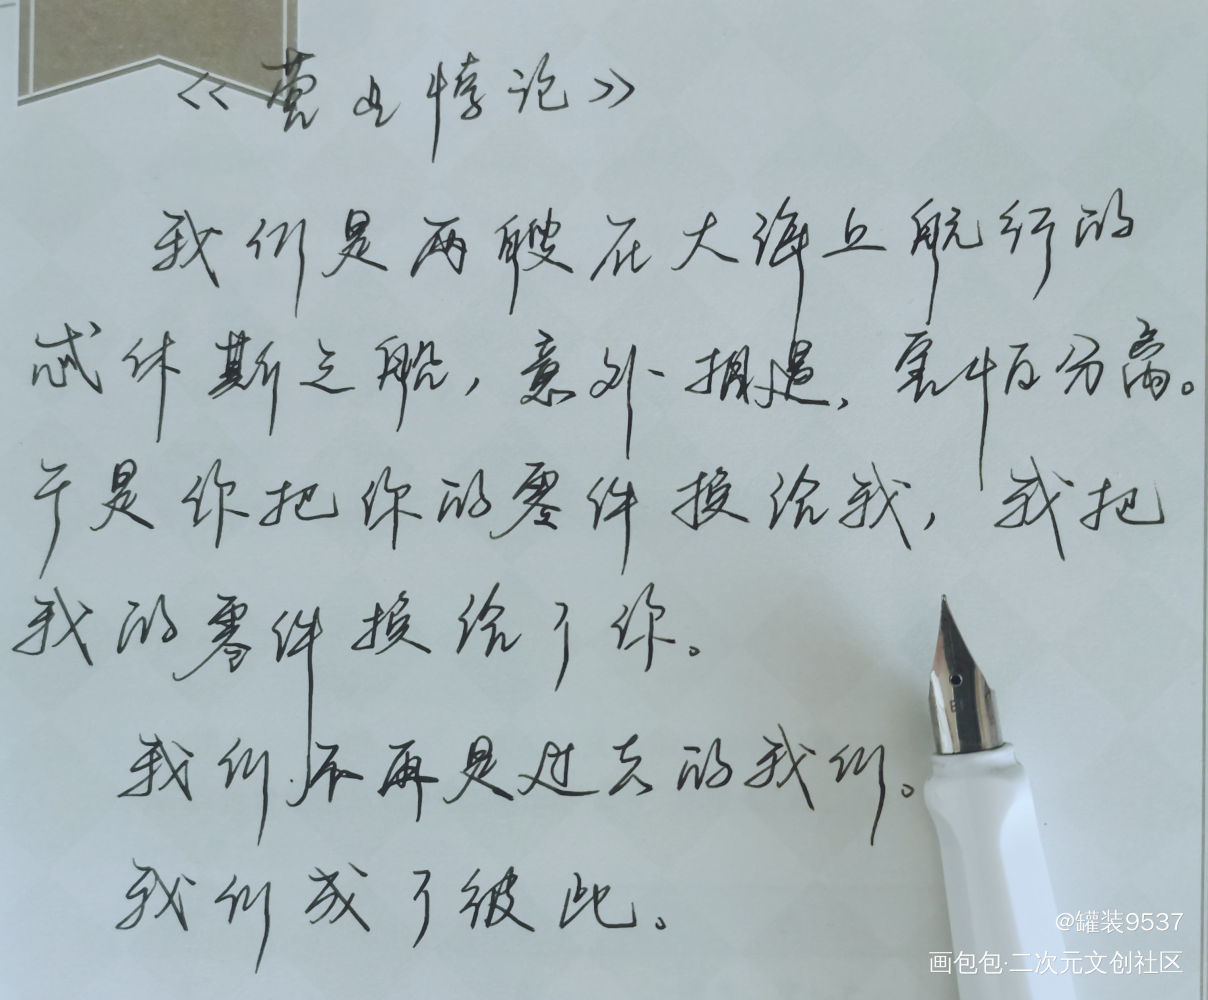 《莫比悖论》
我们是两艘在大海上航行的
忒休斯之船，意外相遇，害怕分离。
于是你把你的零件换给我，我把
我的零件换给了你。
我们不再是过去的我们。
我们成了彼此。
@罐装9537
画包包·二次元文创社区